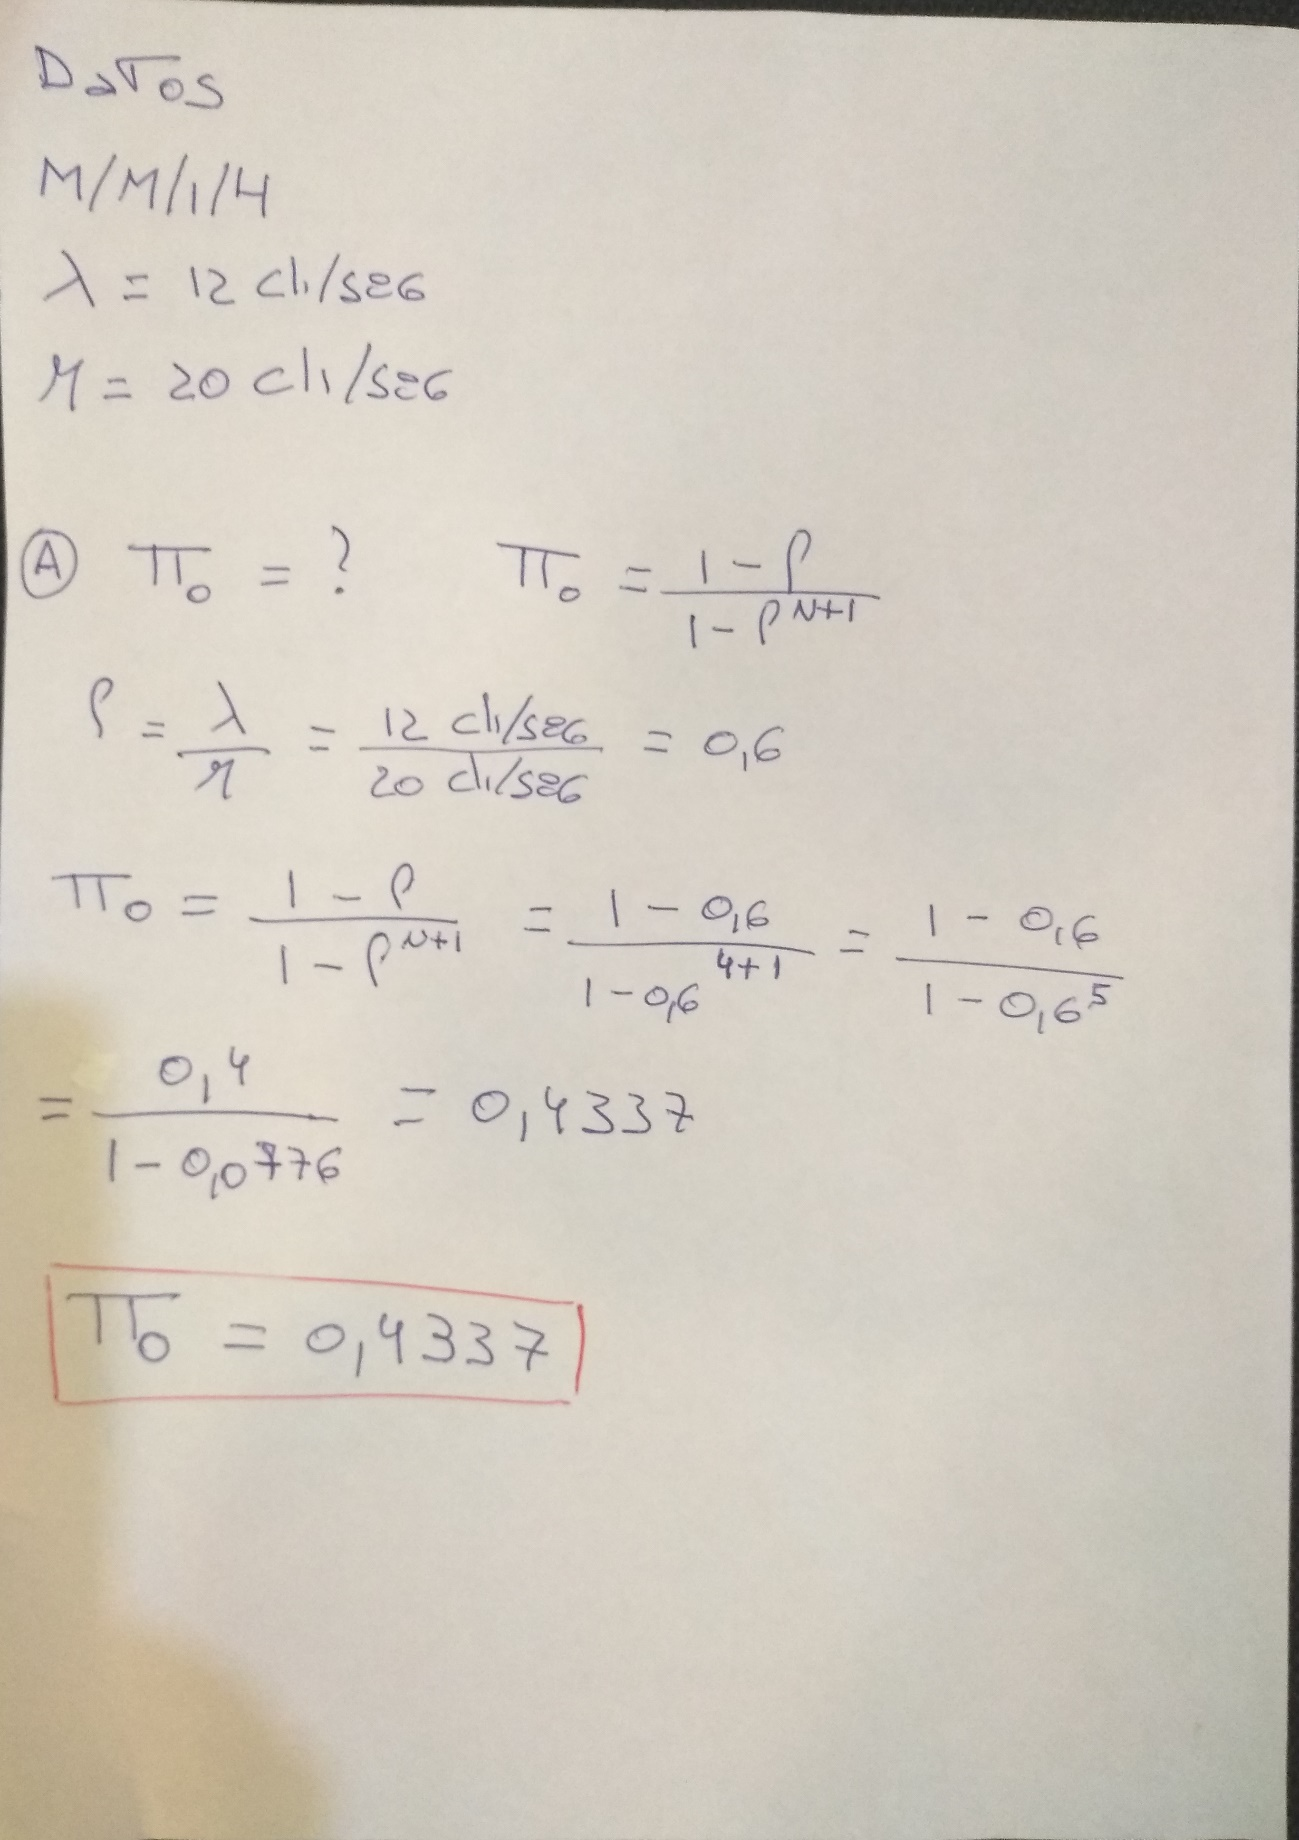 DaTos
M/M/1/4
λ = 12 cli/seg
μ = 20 cli/seg
Ⓐ π₀ = ? π₀ = (1 - ρ) / (1 - ρ^(N+1))
ρ = λ/μ = (12 cli/seg) / (20 cli/seg) = 0,6
π₀ = (1 - ρ) / (1 - ρ^(N+1)) = (1 - 0,6) / (1 - 0,6^(4+1)) = (1 - 0,6) / (1 - 0,6^5)
= 0,4 / (1 - 0,0776) = 0,4337
π₀ = 0,4337